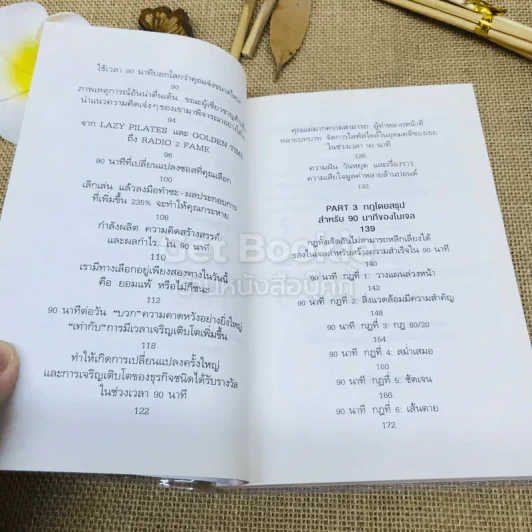 ใช้เวลา 90 นาทีบอกโลกว่าคุณเจ๋งขนาดไหน
90
ภาพเหตุการณ์อันน่าตื่นเต้น...ขณะผู้เชี่ยวชาญด้าน
นำแนวความคิดเจ๋งๆ ของเขามาพิจารณาอย่าง
94
จาก LAZY PILATES และ GOLDEN TIME
ถึง RADIO 2 FAME
96
90 นาทีที่เปลี่ยนแปลงซอสที่คุณเลือก
เลิกเล่น แล้วลงมือทำซะ-ผลประกอบการ
ที่เพิ่มขึ้น 235% จะทำให้คุณกระหาย
106
กำลังผลิต ความคิดสร้างสรรค์
และผลกำไร ใน 90 นาที
เรามีทางเลือกอยู่เพียงสองทางในวันนี้
คือ ยอมแพ้ หรือไม่ก็ชนะ
112
90 นาทีต่อวัน "บวก" ความคาดหวังอย่างยิ่งใหญ่
"เท่ากับ" การมีเวลาเจริญเติบโตเพิ่มขึ้น
118
ทำให้เกิดการเปลี่ยนแปลงครั้งใหญ่
และการเจริญเติบโตของธุรกิจชนิดได้รับรางวัล
ในช่วงเวลา 90 นาที
122
คุณแม่มากความสามารถ ผู้ทำหลายหน้าที่
หลายบทบาท จัดการไลฟ์สไตล์ในอุดมคติของเธอ
ในช่วงเวลา 90 นาที
126
ความฝัน วันหยุด และเรื่องราว
ความเสียใจมูลค่าหลายล้านปอนด์
132
PART 3 กฎโดยสรุป
สำหรับ 90 นาทีของไนเจล
139
กฎทั้งเจ็ดอันไม่สามารถหลีกเลี่ยงได้
ของไนเจลสำหรับสร้างความสำเร็จใน 90 นาที
140
90 นาที กฎที่ 1: วางแผนล่วงหน้า
142
90 นาที กฎที่ 2: สิ่งแวดล้อมมีความสำคัญ
148
90 นาที กฎที่ 3: กฎ 80/20
154
90 นาที กฎที่ 4: สม่ำเสมอ
160
90 นาที กฎที่ 5: ชัดเจน
166
90 นาที กฎที่ 6: เส้นตาย
172
Get Bookie